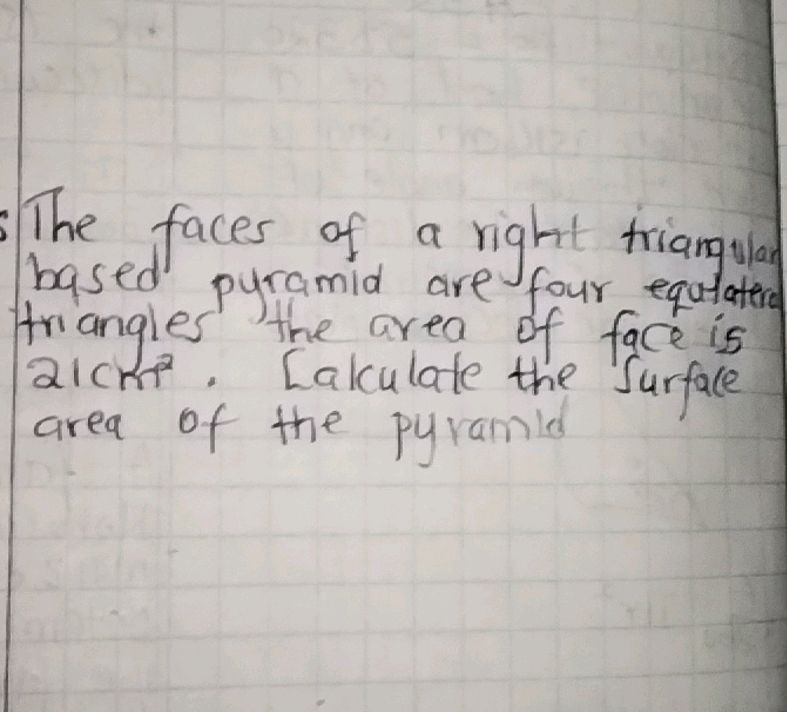 The faces of a right triangular
based pyramid are four equlatera
triangles the area of face is
21cm². Calculate the surface
area of the pyramid